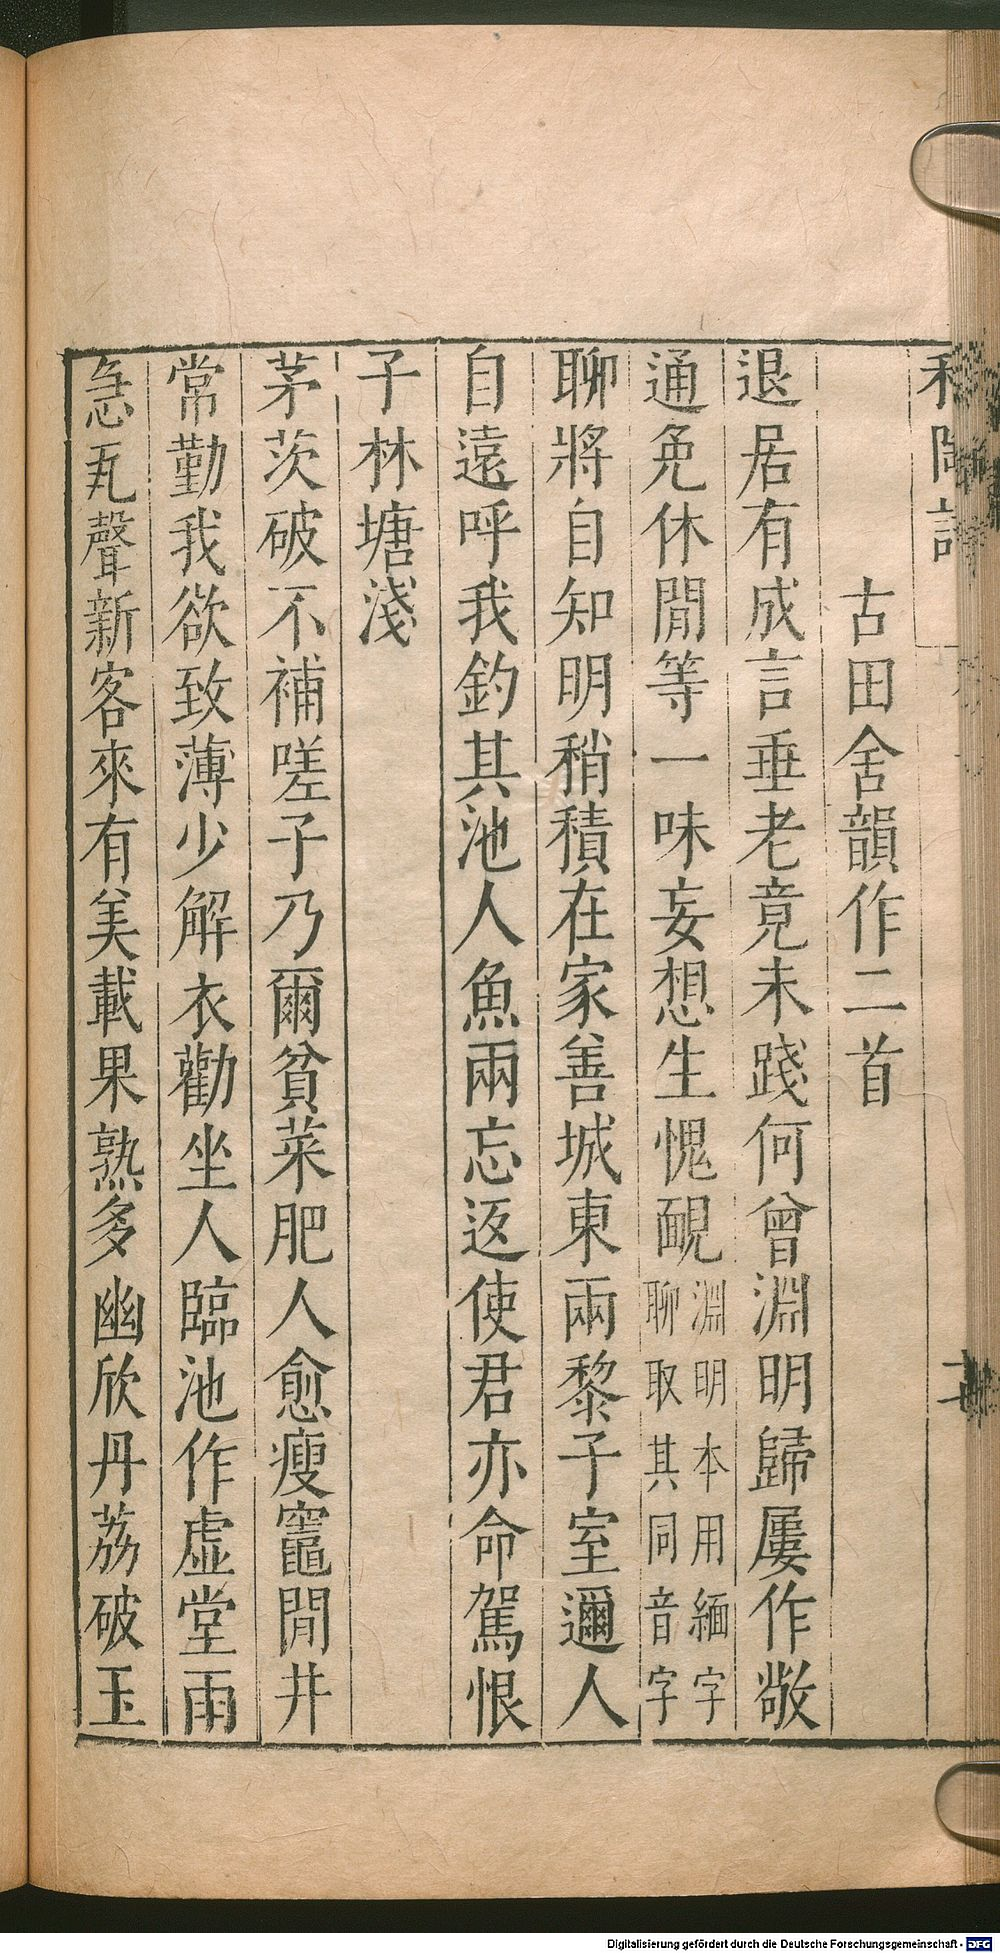 和陶詩
古田舍韻作二首
退居有成言垂老竟未踐何曾淵明歸屢作敝
通免休閒等一味妄想生愧靦淵明本用緬字
聊取其同音字
聊將自知明稍積在家善城東兩黎子室邇人
自遠呼我釣其池人魚兩忘返使君亦命駕恨
子林塘淺
茅茨破不補嗟子乃爾貧菜肥人愈瘦竈閒井
常勤我欲致薄少解衣勸坐人臨池作虛堂雨
急瓦聲新客來有美載果熟多幽欣丹荔破玉
Digitalisierung gefördert durch die Deutsche Forschungsgemeinschaft - DFG